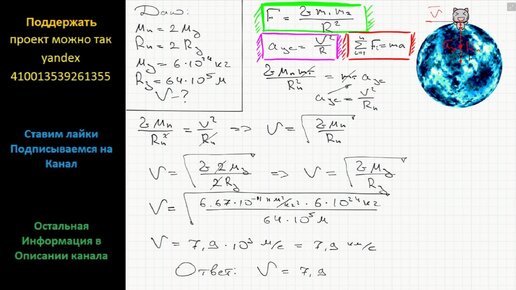 Поддержать
проект можно так
yandex
410013539261355
Ставим лайки
Подписываемся на
Канал
Остальная
Информация в
Описании канала
Дано:
Mп = 2 Mз
Rп = 2 Rз
Mз = 6·10²⁴ кг
Rз = 64·10⁵ м
V - ?
F = G m₁ m₂ / R²
aцс = V² / R
∑ Fi = ma
G Mп m / Rп² = m aцс
aцс = V² / Rп
G Mп / Rп² = V² / Rп => V = √(G Mп / Rп)
V = √(G 2 Mз / 2 Rз) => V = √(G Mз / Rз)
V = √(6.67·10⁻¹¹ Н м²/кг² · 6·10²⁴ кг / 64·10⁵ м)
V = 7,9·10³ м/с = 7,9 км/с
Ответ: V = 7,9
V